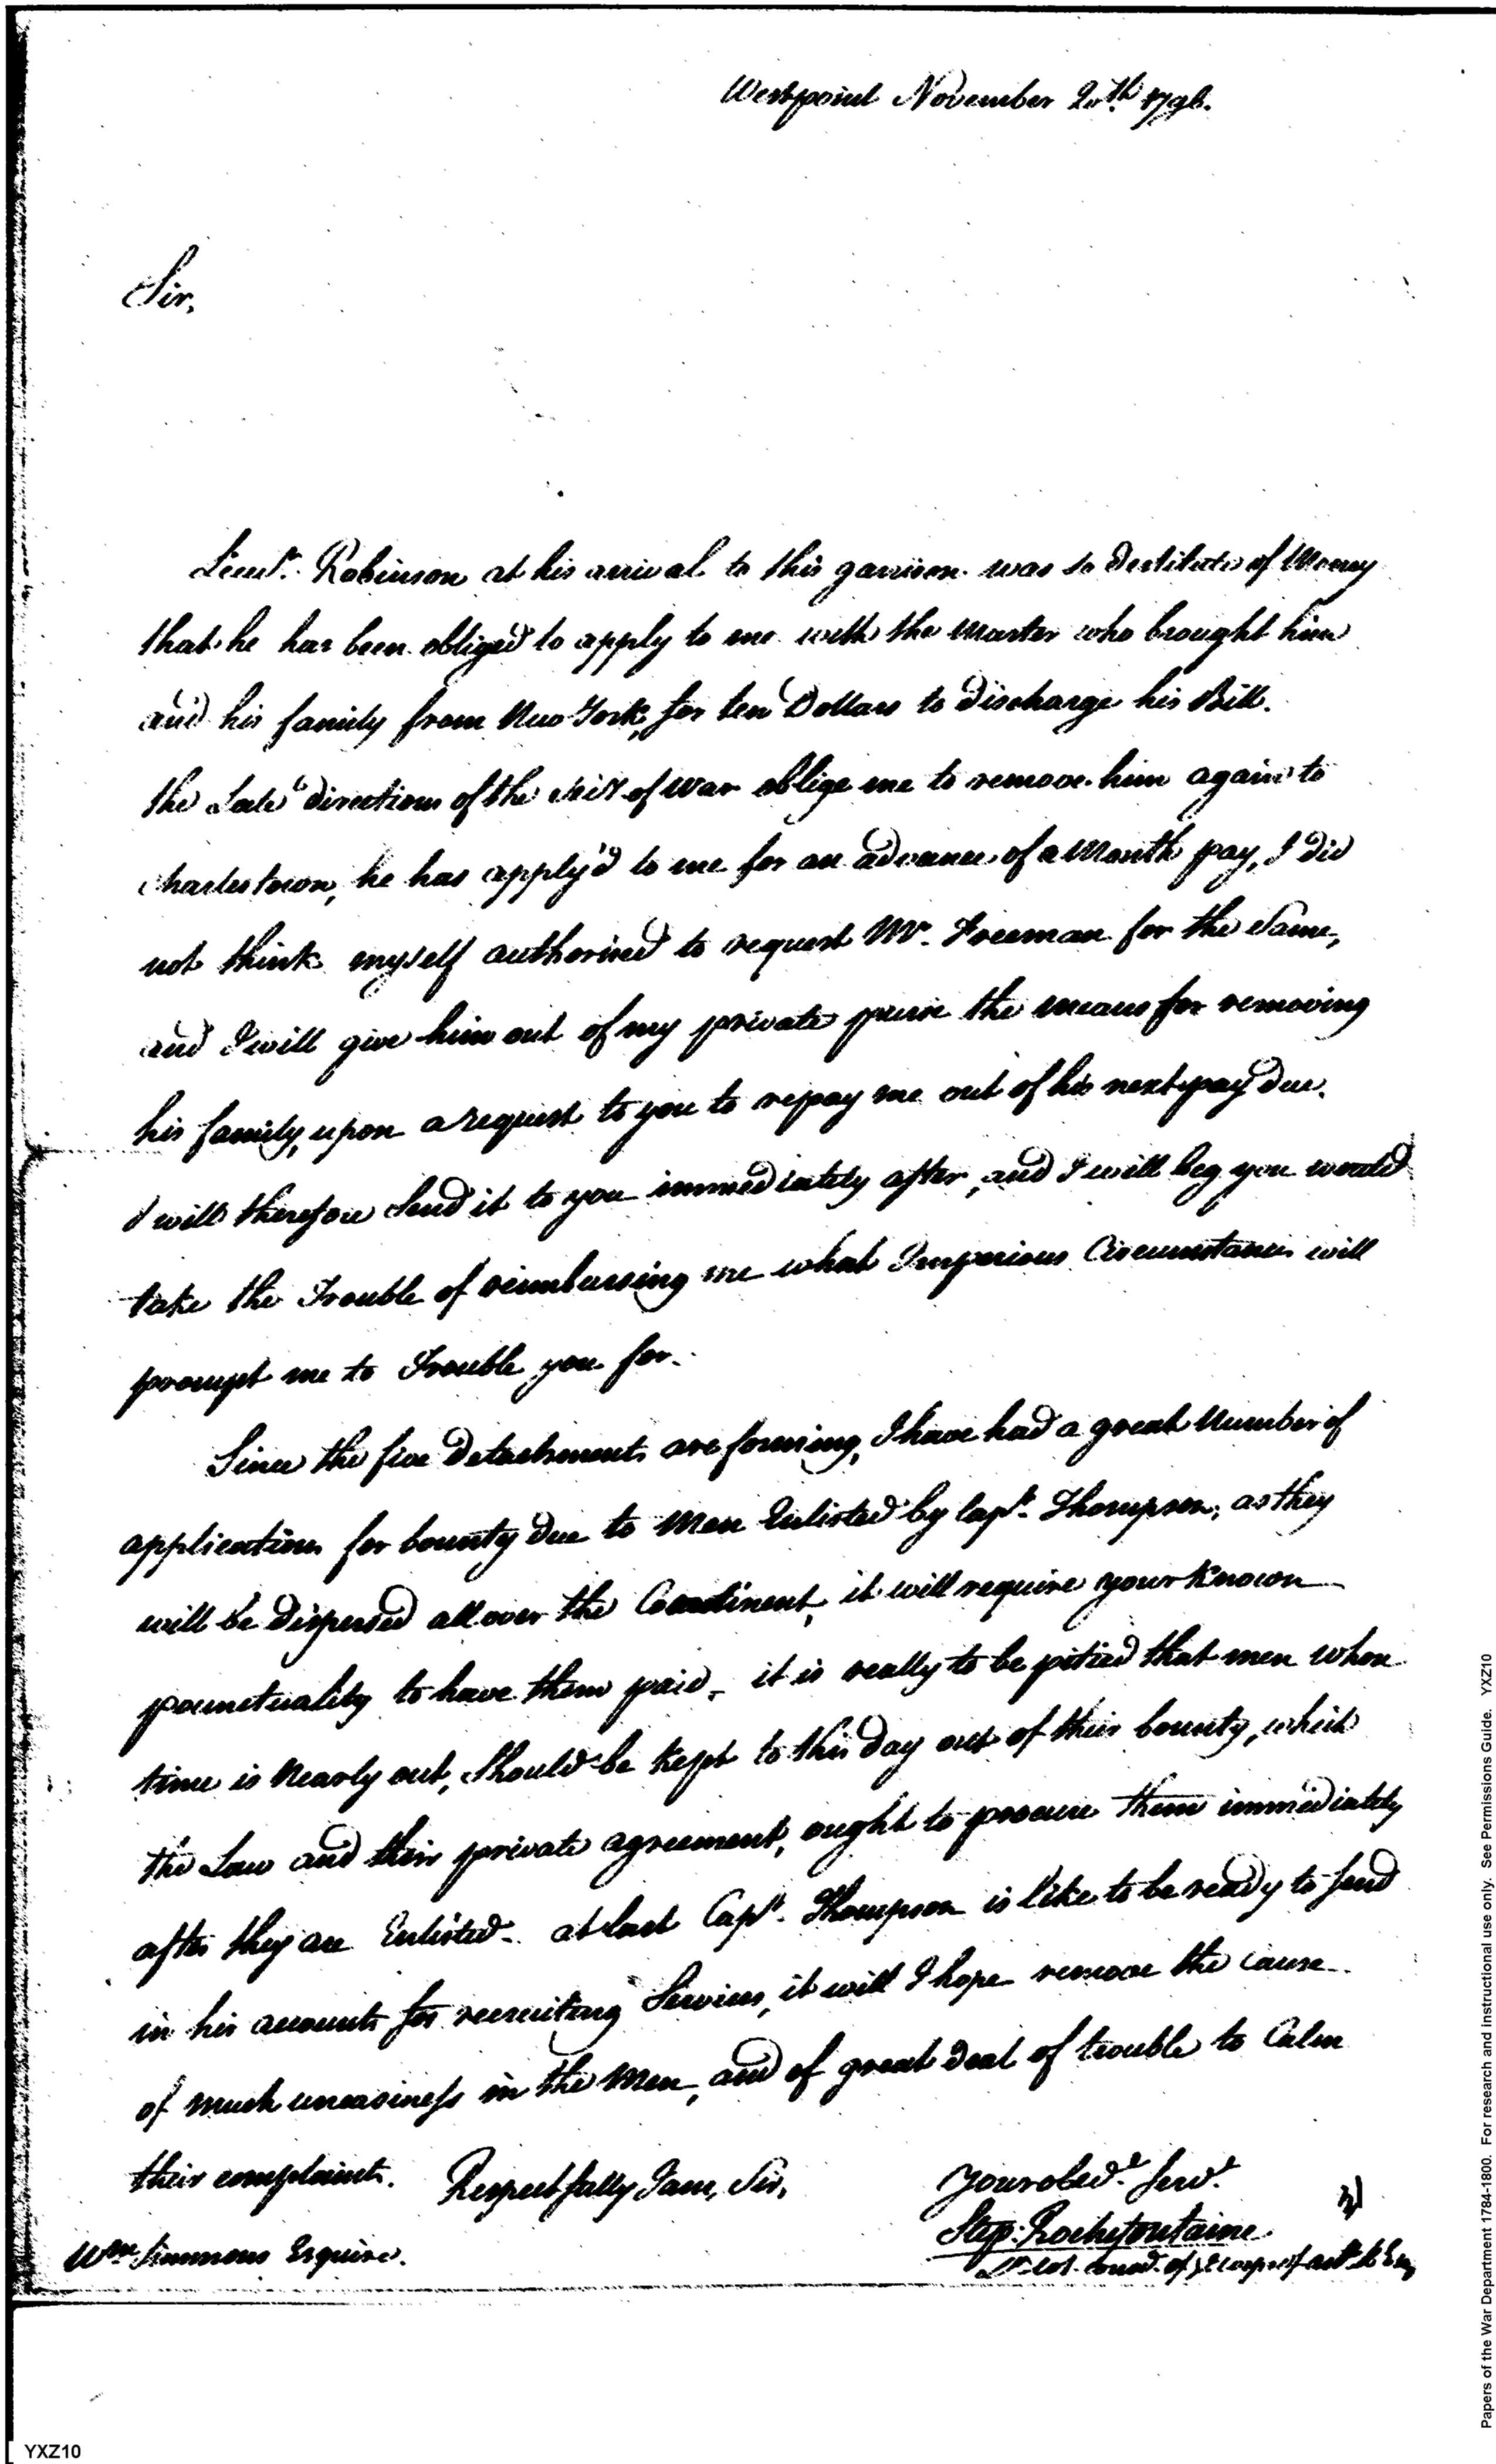 Westpoint November 20th 1796.
Sir,
Lieut. Robinson at his arrival to this garrison was so destitute of Money
that he has been obliged to apply to me with the Master who brought him
and his family from New York, for ten Dollars to discharge his Bill.
the Late directions of the of war oblige me to remove him again to
charlestown, he has apply'd to me for an advance of a Month pay, I did
not think myself authorised to request Mr. Freeman for the Same,
and I will give him out of my private purse the means for removing
his family, upon a request to you to repay me out of his next pay due.
I will therefore Send it to you immediately after, and I will beg you would
take the Trouble of reimbursing me what Imperious Circumstances will
prompt me to Trouble you for.
Since the five Detachments are forming, I have had a great Number of
applications for bounty due to Men Enlisted by Capt. Thompson, as they
will be dispersed all over the Continent, it will require your Known
pounctuality to have them paid, it is really to be pitied that men whose
time is Nearly out, Should be Kept to this day out of their bounty, which
the Law and their private agreement, ought to procure them immediately
after they are Enlisted. at last Capt. Thompson is like to be ready to Send
in his accounts for recruiting Services, it will I hope remove the cause
of much uneasiness in the Men, and of great deal of trouble to Calm
their complaints. Respectfully I am, Sir,
Your obedt. Servt.
Step: Rochefontaine
Lt Col. comd. of ye corps of art. & Eng
Wm Simmons Esquire.
Papers of the War Department 1784-1800. For research and instructional use only. See Permissions Guide. YXZ10
YXZ10